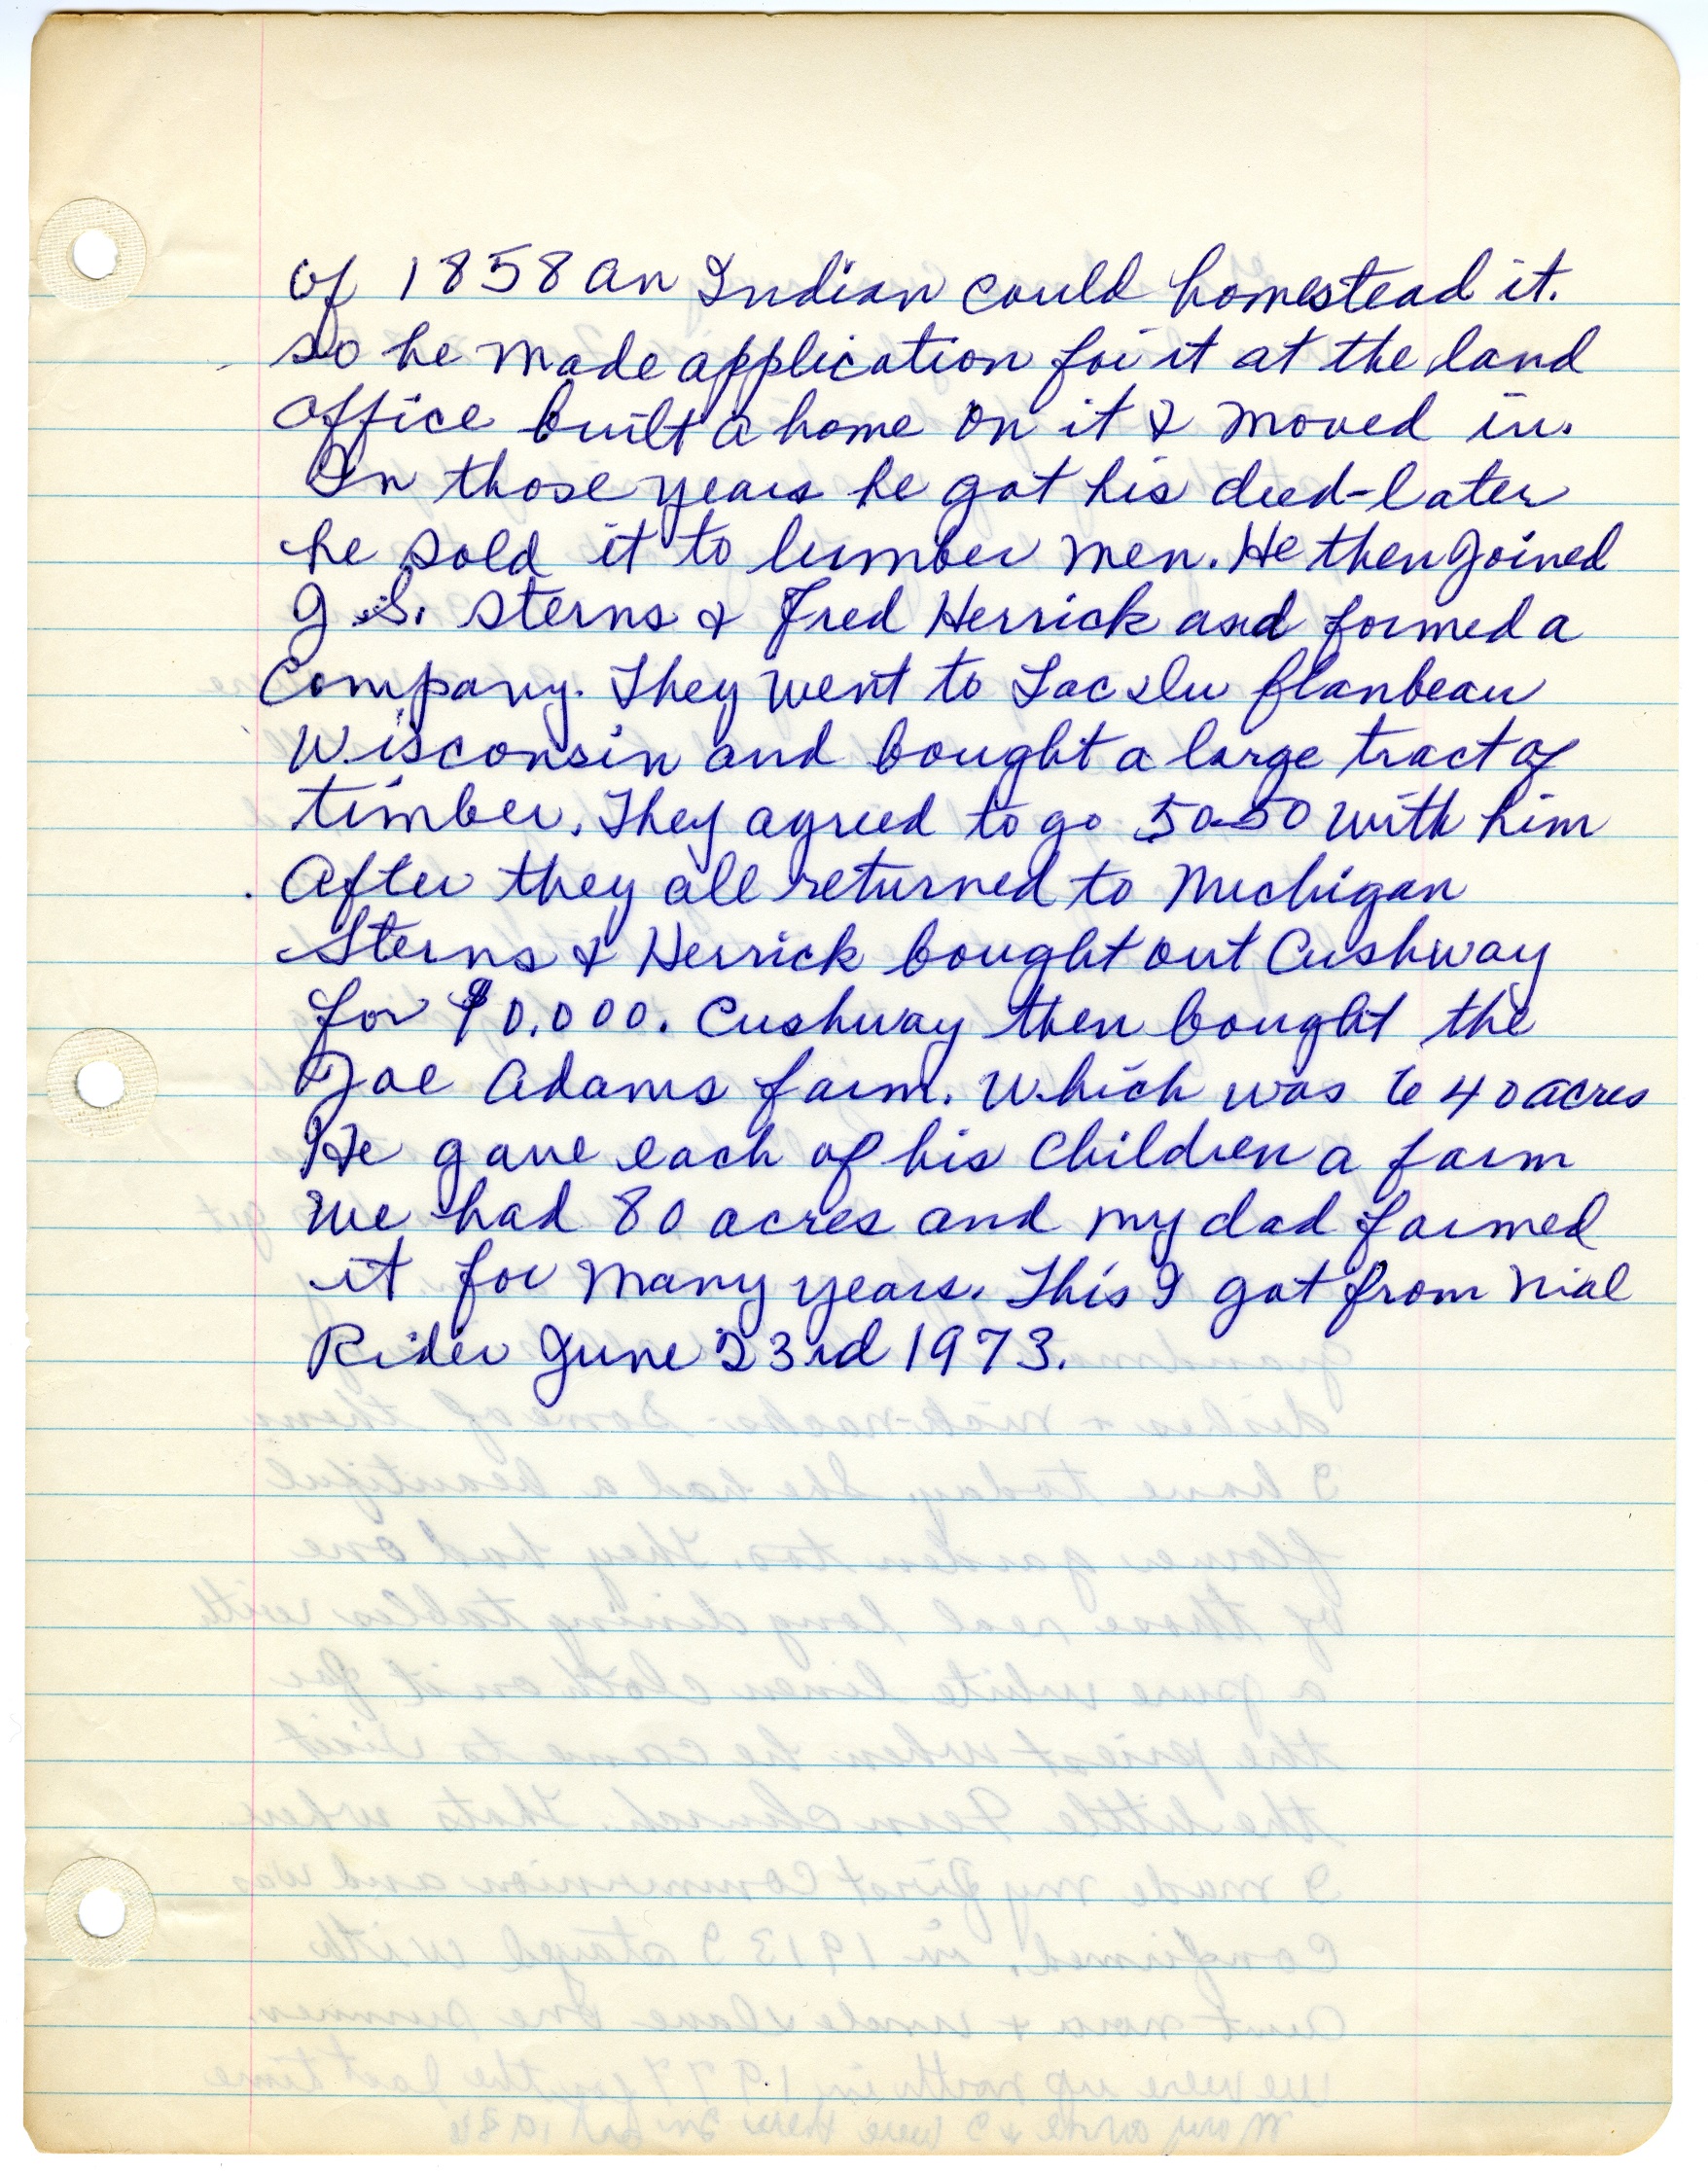 of 1858 an Indian could homestead it.
So he made application for it at the land
office built a home on it & moved in.
In those years he got his deed-later
he sold it to lumber men. He then Joined
J.S. Sterns & Fred Herrick and formed a
Company. They went to Lac du flanbeau
Wisconsin and bought a large tract of
timber. They agreed to go 50-50 with him
After they all returned to Michigan
Sterns & Herrick bought out Cushway
for $0.000. Cushway then bought the
Joe Adams farm. Which was 640 acres
He gave each of his Children a farm
We had 80 acres and my dad farmed
it for many years. This I got from Nial
Rider June 23rd 1973.